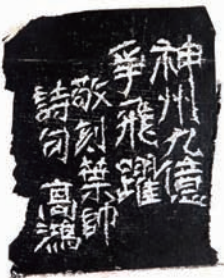 神州九億
爭飛躍
敬刻葉帥
詩句 高鴻